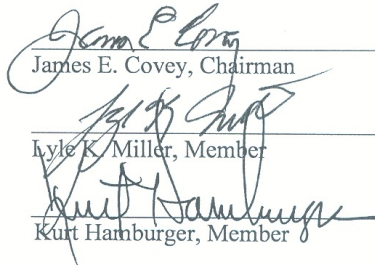 James E Covey
James E. Covey, Chairman
Lyle K. Miller, Member
Kurt Hamburger
Kurt Hamburger, Member